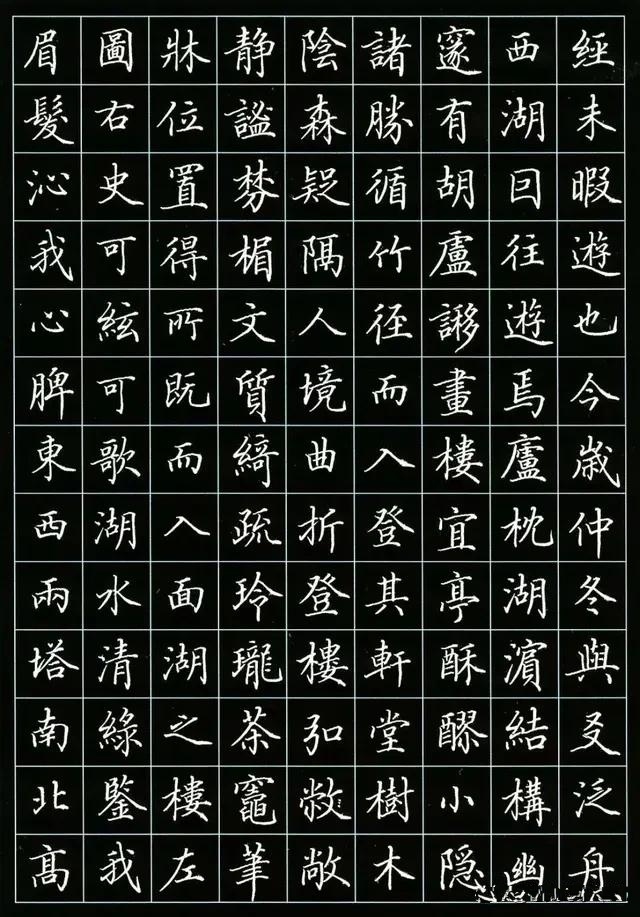 經未暇遊也今歲仲冬與友泛舟
西湖回往遊焉廬枕湖濵結構幽
邃有胡盧謻畫樓宜亭酥醪小隱
諸勝循竹徑而入登其軒堂樹木
陰森疑隔人境曲折登樓弘敝敞
静謐棼楣文質綺疏玲瓏茶竈筆
牀位置得所既而入面湖之樓左
圖右史可絃可歌湖水清綠鑒我
眉髮沁我心脾東西兩塔南北高